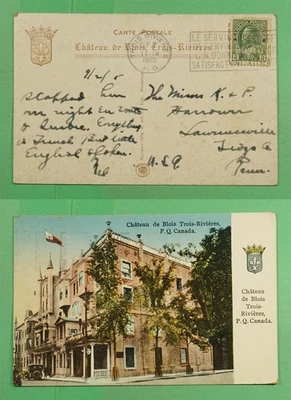 CARTE POSTALE
Château de Blois, Trois-Rivières
P.Q.
LE SERVICE
SATISFACTION
stopped here
one night en route
to Quebec. Everything
is French and little
English spoken.
The Misses K & P
Lawrenceville
Tioga Co
Penn.
U.S.A
Château de Blois Trois-Rivières,
P. Q. Canada.
Château
de Blois
Trois-
Rivières,
P. Q. Canada.